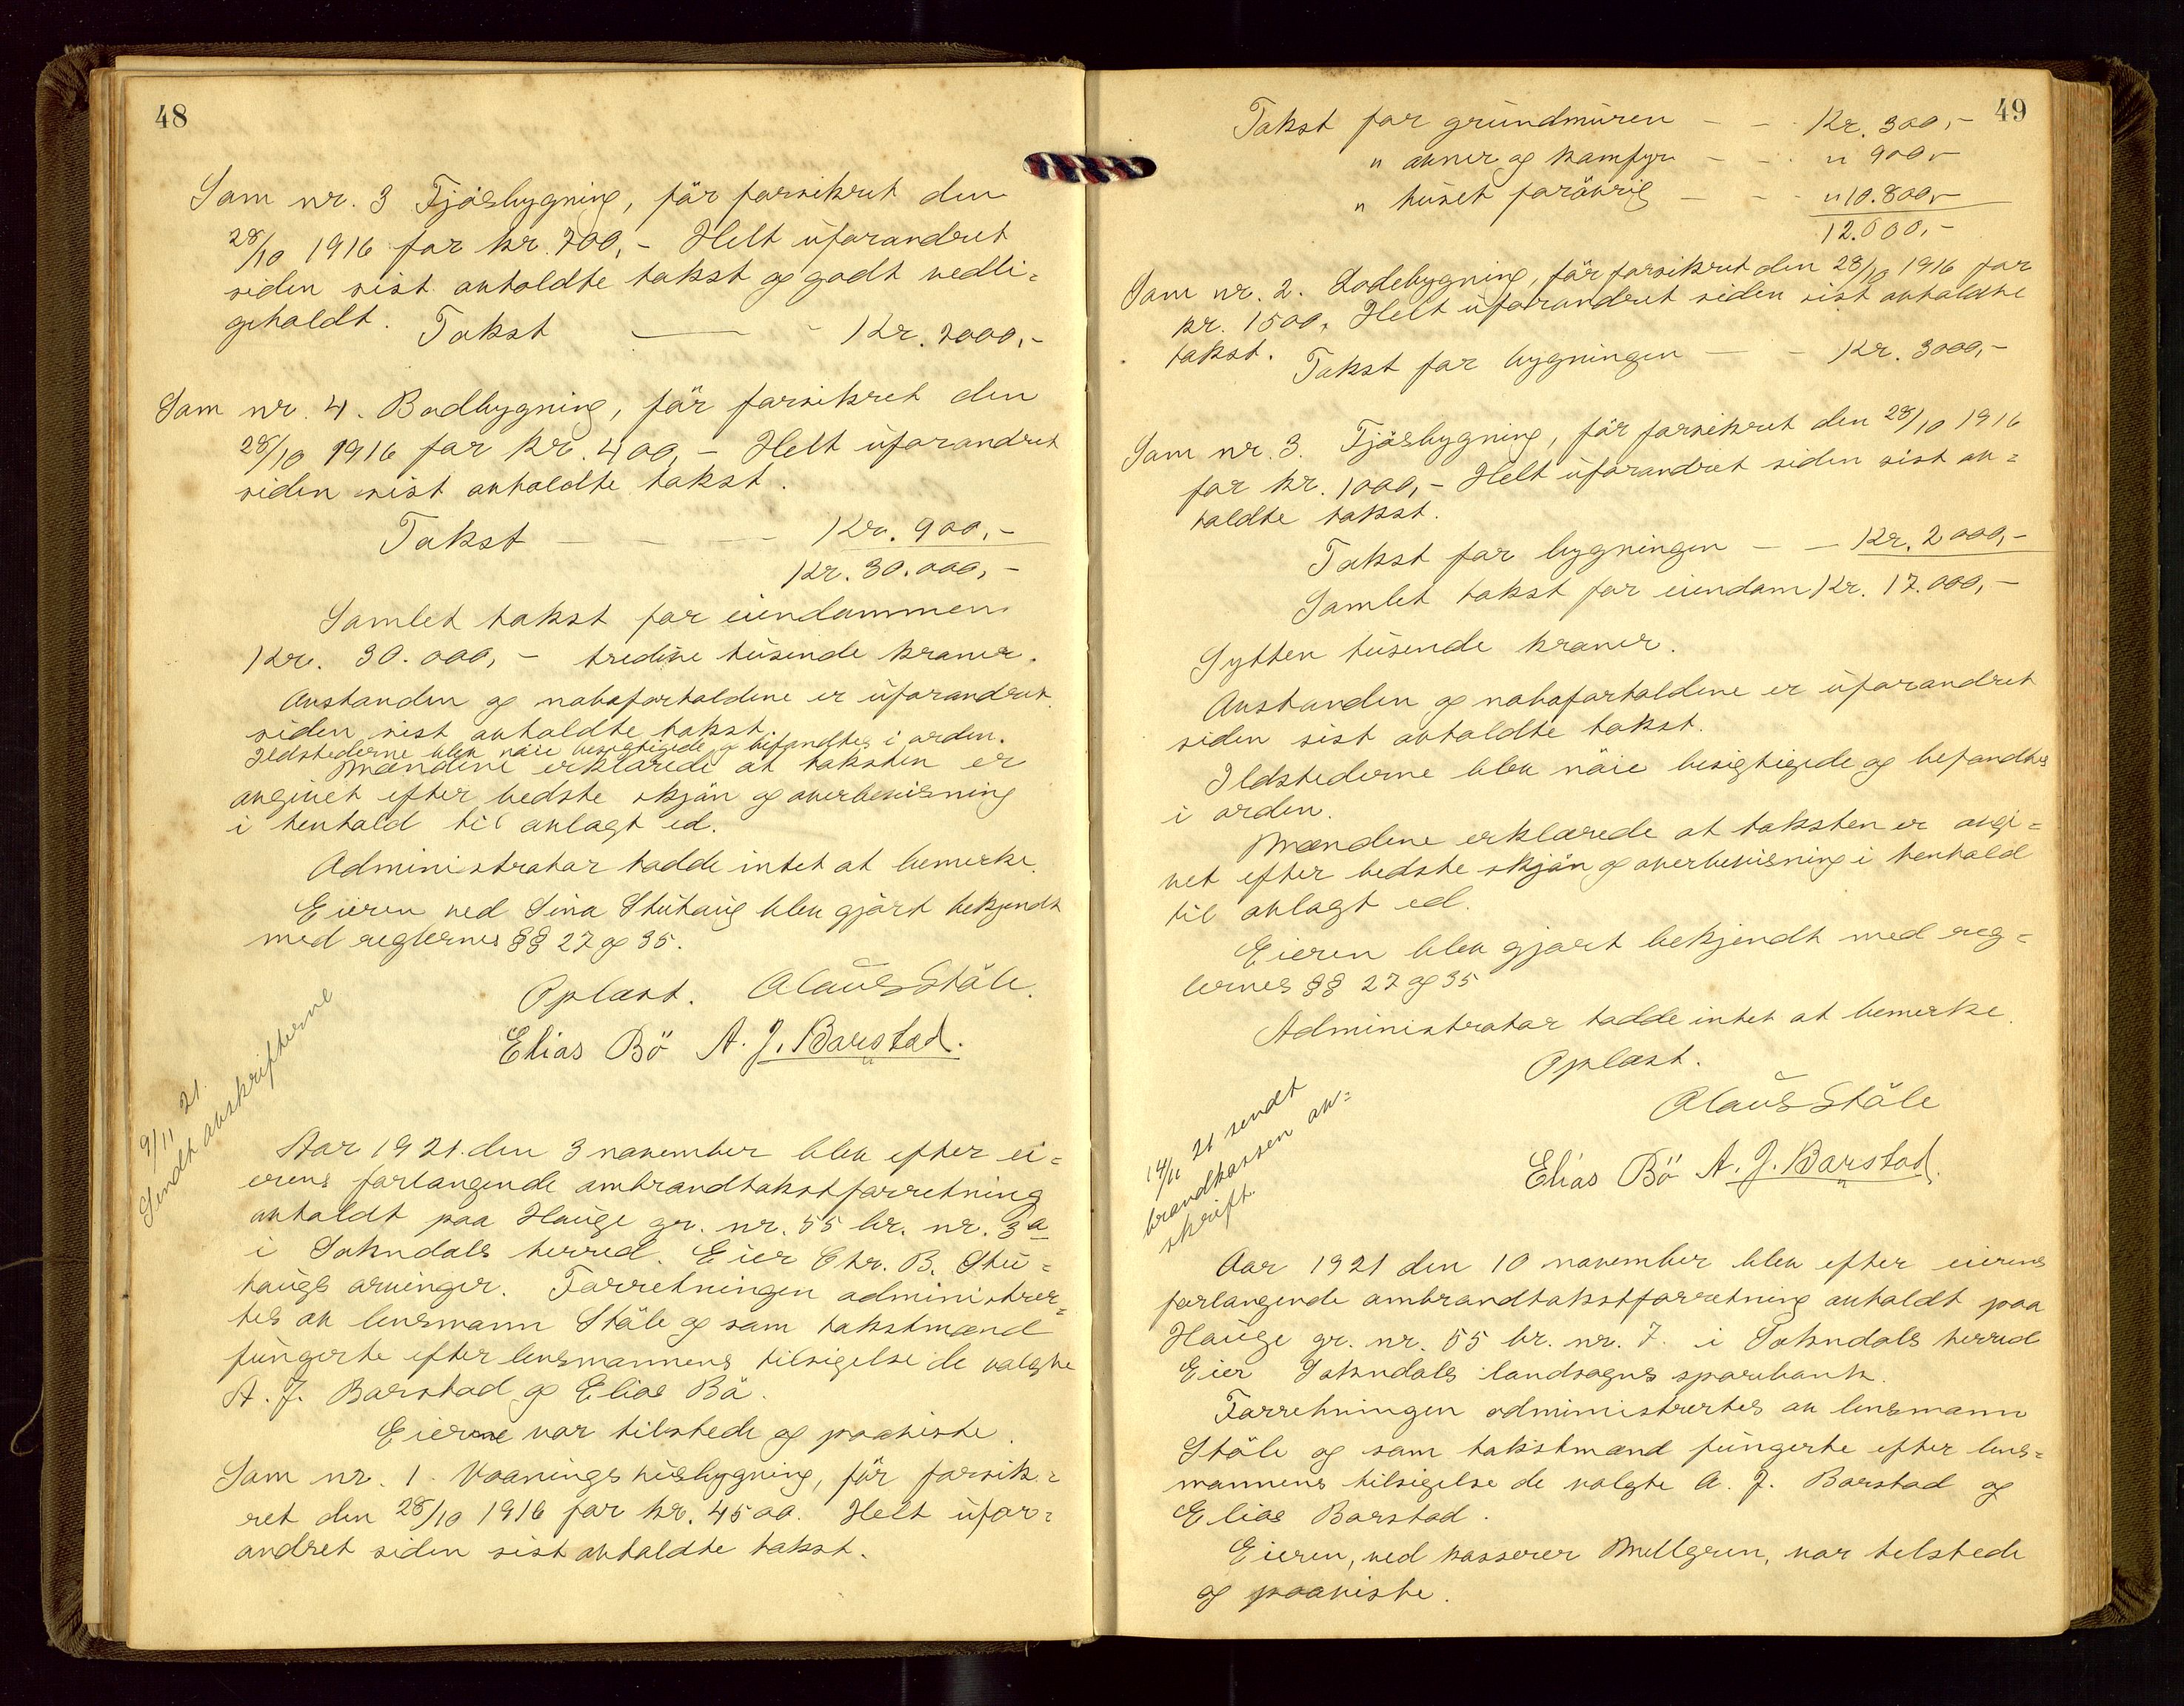 48
Som nr. 3 Fjösbygning, för forsikret den
28/10 1916 for kr. 700,- Helt uforandret
siden sist avholdte takst og godt vedli-
geholdt. Takst — - Kr. 2000,-
Som nr. 4. Bodbygning, för forsikret den
28/10 1916 for kr. 400,- Helt uforandret
siden sist avholdte takst.
Takst - - - Kr. 900,-
Kr. 30.000,-
Samlet takst for eiendommen
Kr. 30.000,- tredive tusende kroner.
Avstanden og naboforholdene er uforandret
siden sist avholdte takst.
Ildstederne blev nöie besigtigede og befandtes i orden.
Mændene erklærede at taksten er
avgivet efter bedste skjön og overbevisning
i henhold til avlagt ed.
Administrator hadde intet at bemerke.
Eieren ved Sina Stuhaug blev gjort bekjendt
med reglernes §§ 27 og 35.
Oplæst. Olaus Ståle.
Elias Bö A. J. Barstad.
9/11 21.
Sendt avskrifterne
Aar 1921 den 3 november blev efter ei-
erens forlangende ombrandtakstforretning
avholdt paa Hauge gr. nr. 55 br. nr. 3a
i Sokndals herred. Eier Chr. B. Stu-
haugs arvinger. Forretningen administrer-
tes av lensmann Ståle og som takstmænd
fungerte efter lensmannens tilsigelse de valgte
A. J. Barstad og Elias Bö.
Eierne var tilstede og paaviste.
Som nr. 1. Vaaningshusbygning, för forsik-
ret den 28/10 1916 for kr. 4500. Helt ufor-
andret siden sist avholdte takst.
49
Takst for grundmuren - - Kr. 300,-
" ovner og komfyr - - " 900,-
" huset forövrig - - " 10.800,-
12.000,-
Som nr. 2. Lodebygning, för forsikret den 28/10 1916 for
kr. 1500,- Helt uforandret siden sist avholdte
takst. Takst for bygningen - - Kr. 3000,-
Som nr. 3. Fjösbygning, för forsikret den 28/10 1916
for kr. 1000,- Helt uforandret siden sist av-
holdte takst.
Takst for bygningen - - Kr. 2000,-
Samlet takst for eiendom Kr. 17.000,-
Sytten tusende kroner.
Avstanden og naboforholdene er uforandret
siden sist avholdte takst.
Ildstederne blev nöie besigtigede og befandtes
i orden.
Mændene erklærede at taksten er avgi-
vet efter bedste skjön og overbevisning i henhold
til avlagt ed.
Eieren blev gjort bekjendt med reg-
lernes §§ 27 og 35
Administrator hadde intet at bemerke.
Oplæst.
Olaus Ståle
Elias Bö A. J. Barstad.
14/11 21 sendt
brandkassen av-
skrift.
Aar 1921 den 10 november blev efter eierens
forlangende ombrandtakstforretning avholdt paa
Hauge gr. nr. 55 br. nr. 7. i Sokndals herred
Eier Sokndals landsogns sparebank.
Forretningen administrertes av lensmann
Ståle og som takstmænd fungerte efter lens-
mannens tilsigelse de valgte A. J. Barstad og
Elias Barstad.
Eieren, ved kasserer Mellgren, var tilstede
og paaviste.